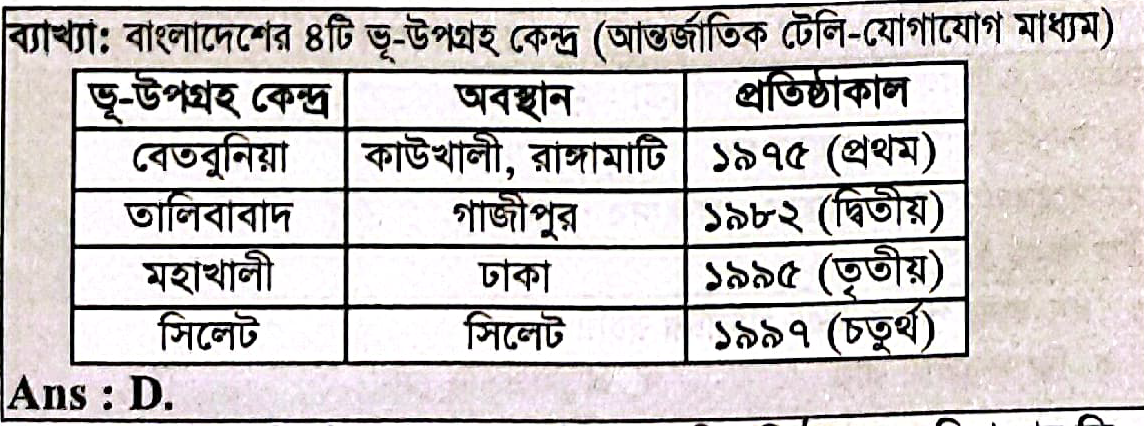 ব্যাখ্যা: বাংলাদেশের ৪টি ভূ-উপগ্রহ কেন্দ্র (আন্তর্জাতিক টেলি-যোগাযোগ মাধ্যম)
ভূ-উপগ্রহ কেন্দ্র অবস্থান প্রতিষ্ঠাকাল
বেতবুনিয়া কাউখালী, রাঙ্গামাটি ১৯৭৫ (প্রথম)
তালিবাবাদ গাজীপুর ১৯৮২ (দ্বিতীয়)
মহাখালী ঢাকা ১৯৯৫ (তৃতীয়)
সিলেট সিলেট ১৯৯৭ (চতুর্থ)
Ans : D.